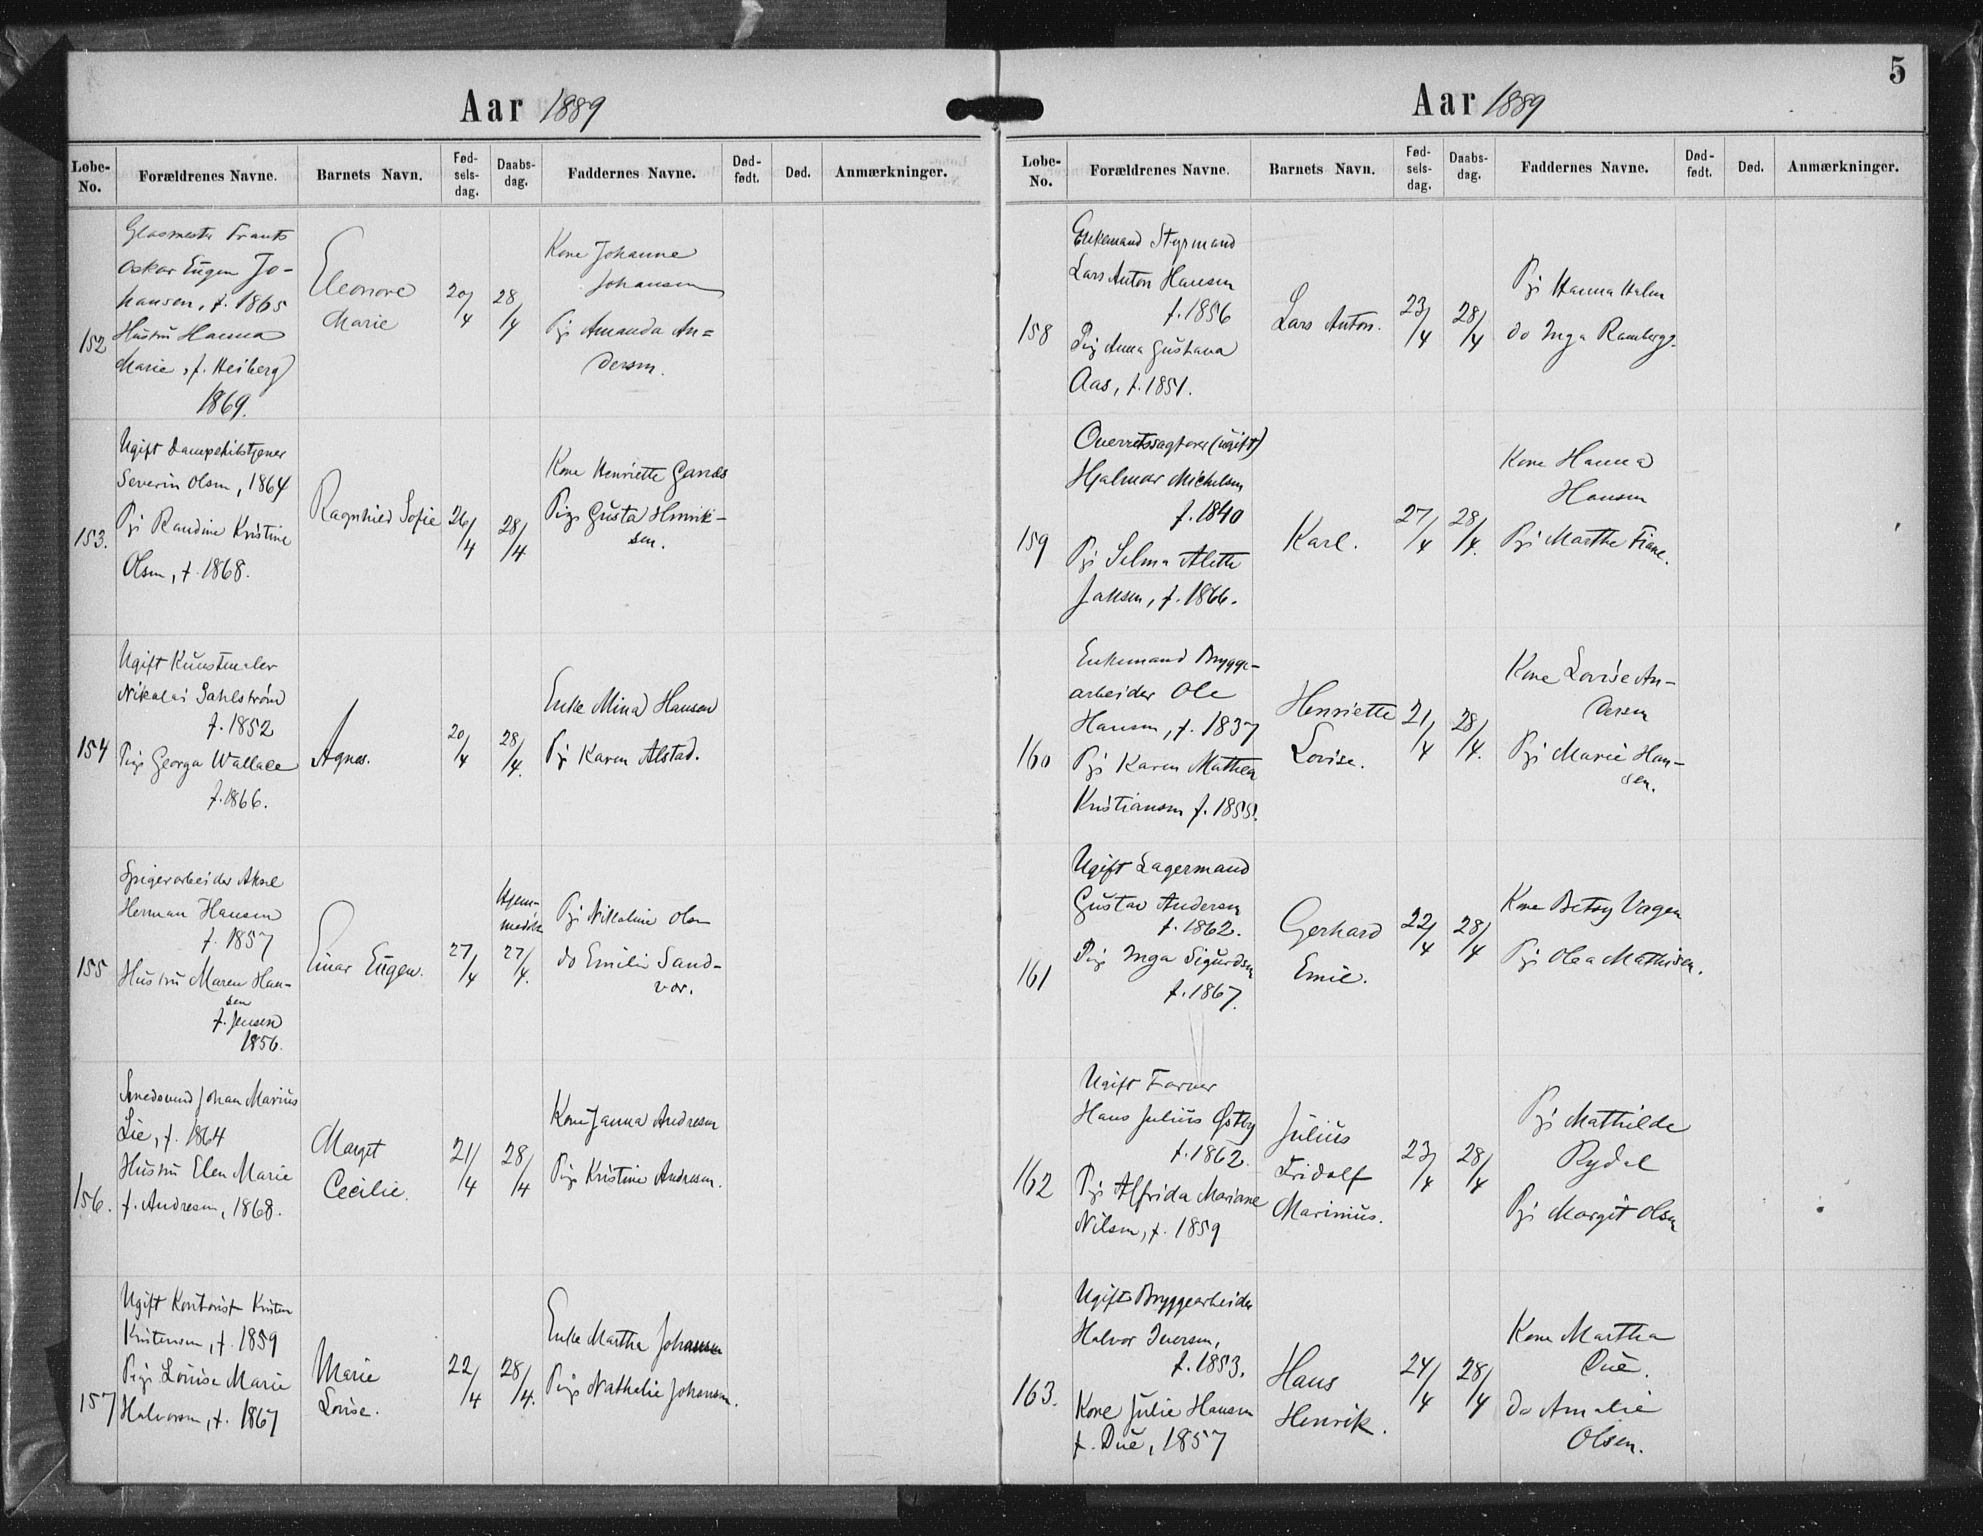 Aar 1889
Løbe-No.
Forældrenes Navne.
Barnets Navn.
Fød-sels-dag.
Daabs-dag.
Faddernes Navne.
Død-født.
Død.
Anmærkninger.
152
Glasmester Frants
Oskar Eugen Jo-
hansen, f. 1865
Hustru Hanna
Marie, f. Heiberg
1869.
Eleonore
Marie
20/4
28/4
Kone Johanne
Johansen
Pige Amanda An=
dersen.
153.
Ugift Dampskibstjener
Severin Olsen, 1864
Pig Randine Kristine
Olsen, f. 1868.
Ragnhild Sofie
26/4
28/4
Kone Henriette
Pige Gusta Henrik-
sen.
154
Ugift Kunstmaler
Nikolai Dahlstrøm
f. 1852
Pige Georga Wallace
f. 1866.
Agnes.
20/4
28/4.
Enke Mina Hansen
Pig Karen Alstad.
155
Spigerarbeider Aksel
Herman Hansen
f. 1857
Hustru Maren Han-
sen
f. Jensen
1856.
Einar Eugen.
27/4
Hjem-
27/4.
Pig Nikoline Olsen
do Emilie Sand-
vor.
156.
Smedsvend Johan Marius
Lie, f. 1864
Hustru Elen Marie
f. Andresen, 1868.
Margit
Cecilie.
21/4
28/4
Kone Janna Andresen
Pige Kristine Andresen.
157
Ugift Kontorist Kristen
Kristensen, f. 1859
Pige Louise Marie
Halvorsen, f. 1867
Marie
Lovise.
22/4
28/4.
Enke Martha Johansen
Pige Nathalie Johansen.
5
Aar 1889
Løbe-No.
Forældrenes Navne.
Barnets Navn.
Fød-sels-dag.
Daabs-dag.
Faddernes Navne.
Død-født.
Død.
Anmærkninger.
158
Enkemand Styrmand
Lars Anton Hansen
f. 1856
Pig Anna Gustava
Aas, f. 1851.
Lars Anton.
23/4
28/4
Pig Hanna Holm
do Inga Ramberg.
159
Overretssagfører (ugift)
Hjalmar Michelsen
f. 1840
Pig Selma Alette
Jansen, f. 1866.
Karl.
27/4
28/4.
Kone Hanna
Hansen
Pig Marthe Fiane.
160
Enkemand Brygge-
arbeider Ole
Hansen, f. 1837
Pig Karen Mathea
Kristiansen f. 1855.
Henriette
Lovise.
21/4
28/4.
Kone Lovise An-
dersen
Pig Marie Han-
sen.
161
Ugift Lagermand
Gustav Andersen
f. 1862.
Pig Inga Sigurdsen
f. 1867.
Gerhard
Emil.
22/4
28/4
Kone Betsy Vagen
Pig Olea Mathisen.
162
Ugift Farver
Hans Julius Østby
f. 1862.
Pig Alfrida Mariane
Nilsen, f. 1859
Julius
Fridolf
Marinius.
23/4
28/4
Pig Mathilde
Rydel
Pig Margit Olsen
163.
Ugift Bryggearbeider
Halvor Iversen,
f. 1853.
Kone Julie Hansen
f. Due, 1857
Hans
Henrik.
24/4
28/4
Kone Martha
Due.
do Amalie
Olsen.